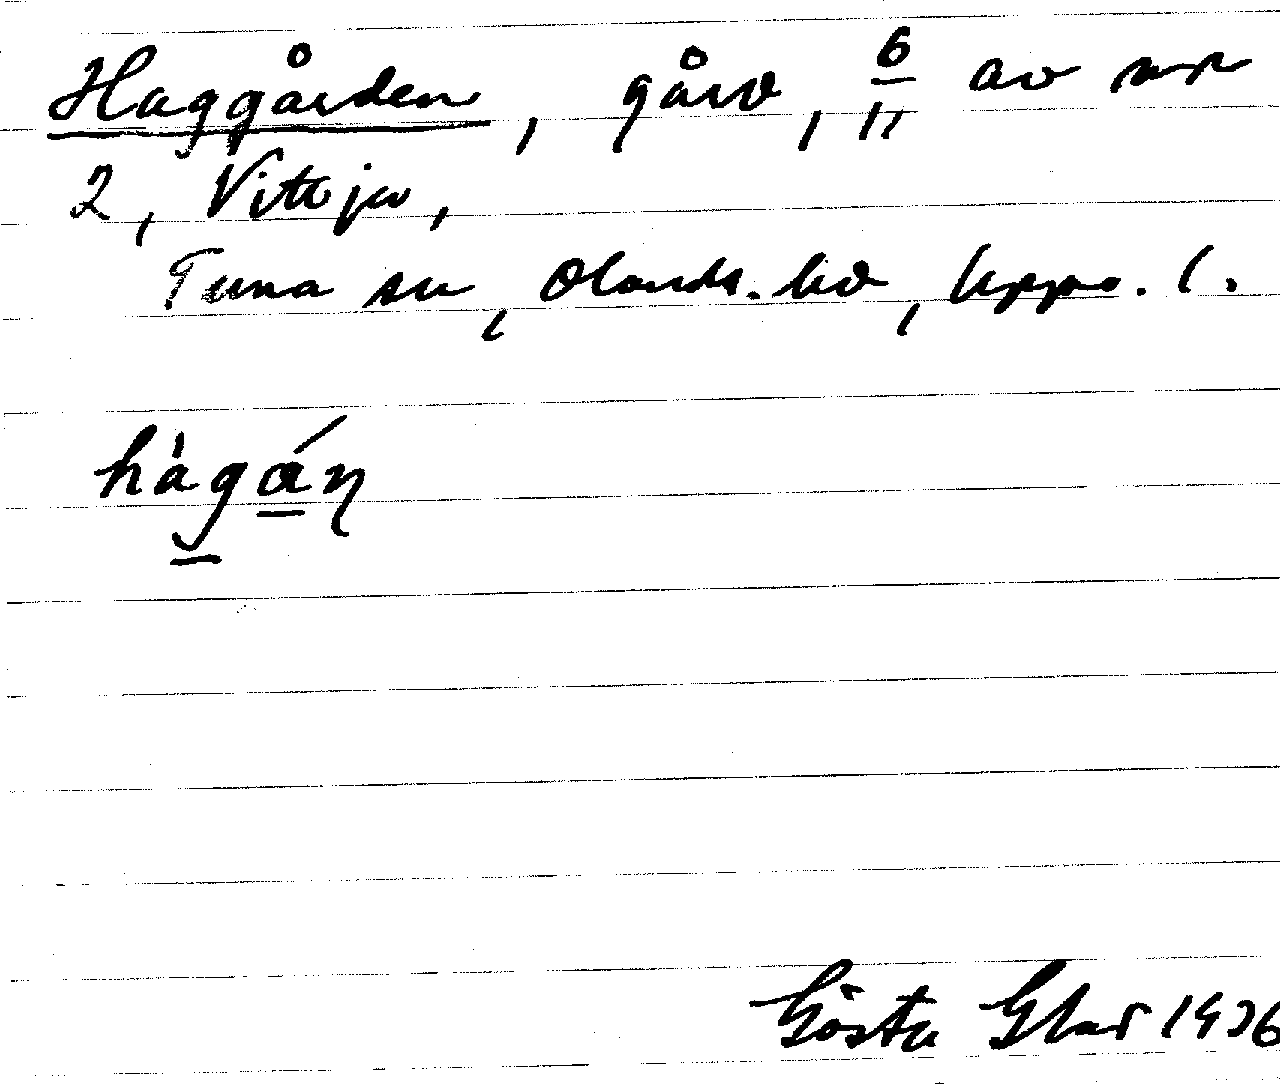 Haggården, gård, 6/11 av nr
2, Vittja,
Tuna sn, Olands. hd, Upps. l.
hàgán
Gösta Glas 1936